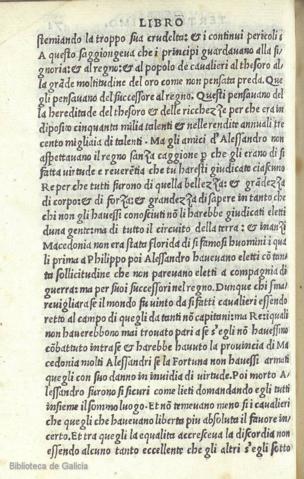 LIBRO
stemiando la troppo sua crudelta: & i continui pericoli;
A questo saggiongeva che i principi guardavano alla si
gnoria: & al regno: & al popolo de cavalieri al thesoro al
la grãde moltitudine del oro come non pensata preda. Que
gli pensavano del successore al regno. Questi pensavano del
la hereditade del thesoro & delle ricchezze per che era in
diposito cinquanta milia talenti & nelle rendite annuali tre
cento migliaia di talenti. Ma gli amici d'Alessandro non
aspettavano il regno sanza caggione ꝑ che gli erano di si
fatta virtude e reverẽtia che tu haresti giudicato ciascuno
Re per che tutti furono di quella bellezza: & grãdezza
di corpo: & di forza: & grandezza di sapere in tanto che
chi non gli havessi conosciuti nõ li harebbe giudicati eletti
duna gente: ma di tutto il circuito della terra: & inanzi
Macedonia non era stata florida di si famosi huomini i qua
li prima a Philippo poi Alessandro havevano eletti cõ tan
ta sollicitudine che non parevano eletti a compagnia di
guerra: ma per suoi successori nel regno. Dunque chi si ma
revigliarà se il mondo fu vinto da si fatti cavalieri essendo
retto al campo di quegli da tanti nõ capitani: ma Re i quali
non haverebbono mai trovato pari a se s'egli nõ havessino
cõbattuto intra se & harebbe havuto la provincia di Ma
cedonia molti Alessandri se la Fortuna non havessi armati
quegli con suo danno in invidia di virtude. Poi morto A
lessandro furono si sicuri come lieti domandando egli tutti
insieme il sommo luogo. Et nõ temevano meno si i cavalieri
che quegli che havevano liberta piu absoluta il favore in-
certo. Et tra quegli la equalita accresceva la discordia non
essendo alcuno tanto eccellente che gli altri s'egli sotto
Biblioteca de Galicia